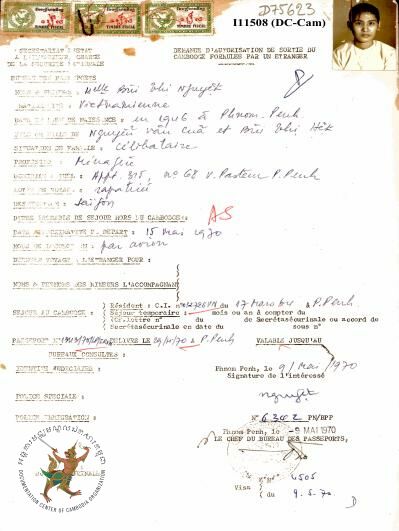 D75623
I11508 (DC-Cam)
SECRETARIAT D'ETAT
A L'INTERIEUR, CHARGE
DE LA SECURITE NATIONALE
DEMANDE D'AUTORISATION DE SORTIE DU
CAMBODGE FORMULES PAR UN ETRANGER
BUREAU DES PASSEPORTS
NOMS & PRENOMS : Melle Bùi Thi Nguyêt
NATIONALITE : Vietnamienne
DATE DE LIEU DE NAISSANCE : en 1946 à Phnom-Penh
Nguyên văn Cuả et Bùi Thi
SITUATION DE FAMILLE : Célibataire
PROFESSION : Ménagère
Appt. 315, nº 68 V. Pasteur P. Penh
rapatriée
DESTINATION : Saïfon
DUREE PROBABLE DE SEJOUR HORS DU CAMBODGE :
AS
DATE APPROXIMATIVE DU DEPART : 15 Mai 1970
par avion
DERNIER VOYAGE A L'ETRANGER POUR :
NOMS & PRENOMS DES MINEURS L'ACCOMPAGNANT
Résident : C.I. du 17 Mars à P. Penh
SEJOUR AU CAMBODGE : Séjour temporaire : mois ou an à compter du
(Cf.lettre n° du de Secrétaséurinale ou accord de
Secrétaséurinale en date du sous n°
PASSEPORT N° DELIVRE LE à P. Penh VALABLE JUSQU'AU
BUREAUX CONSULTES :
Phnom Penh, le 9/Mai/1970
IDENTITE JUDICIAIRE : Signature de l'intéressé
nguyệt
POLICE SPECIALE :
N° 6342 PN/BPP
POLICE IMMIGRATION : Phnom Penh, le - 9 MAI 1970
LE CHEF DU BUREAU DES PASSEPORTS,
N° 4505
Visa du 9.5.70
DOCUMENTATION CENTER OF CAMBODIA ORGANIZATION